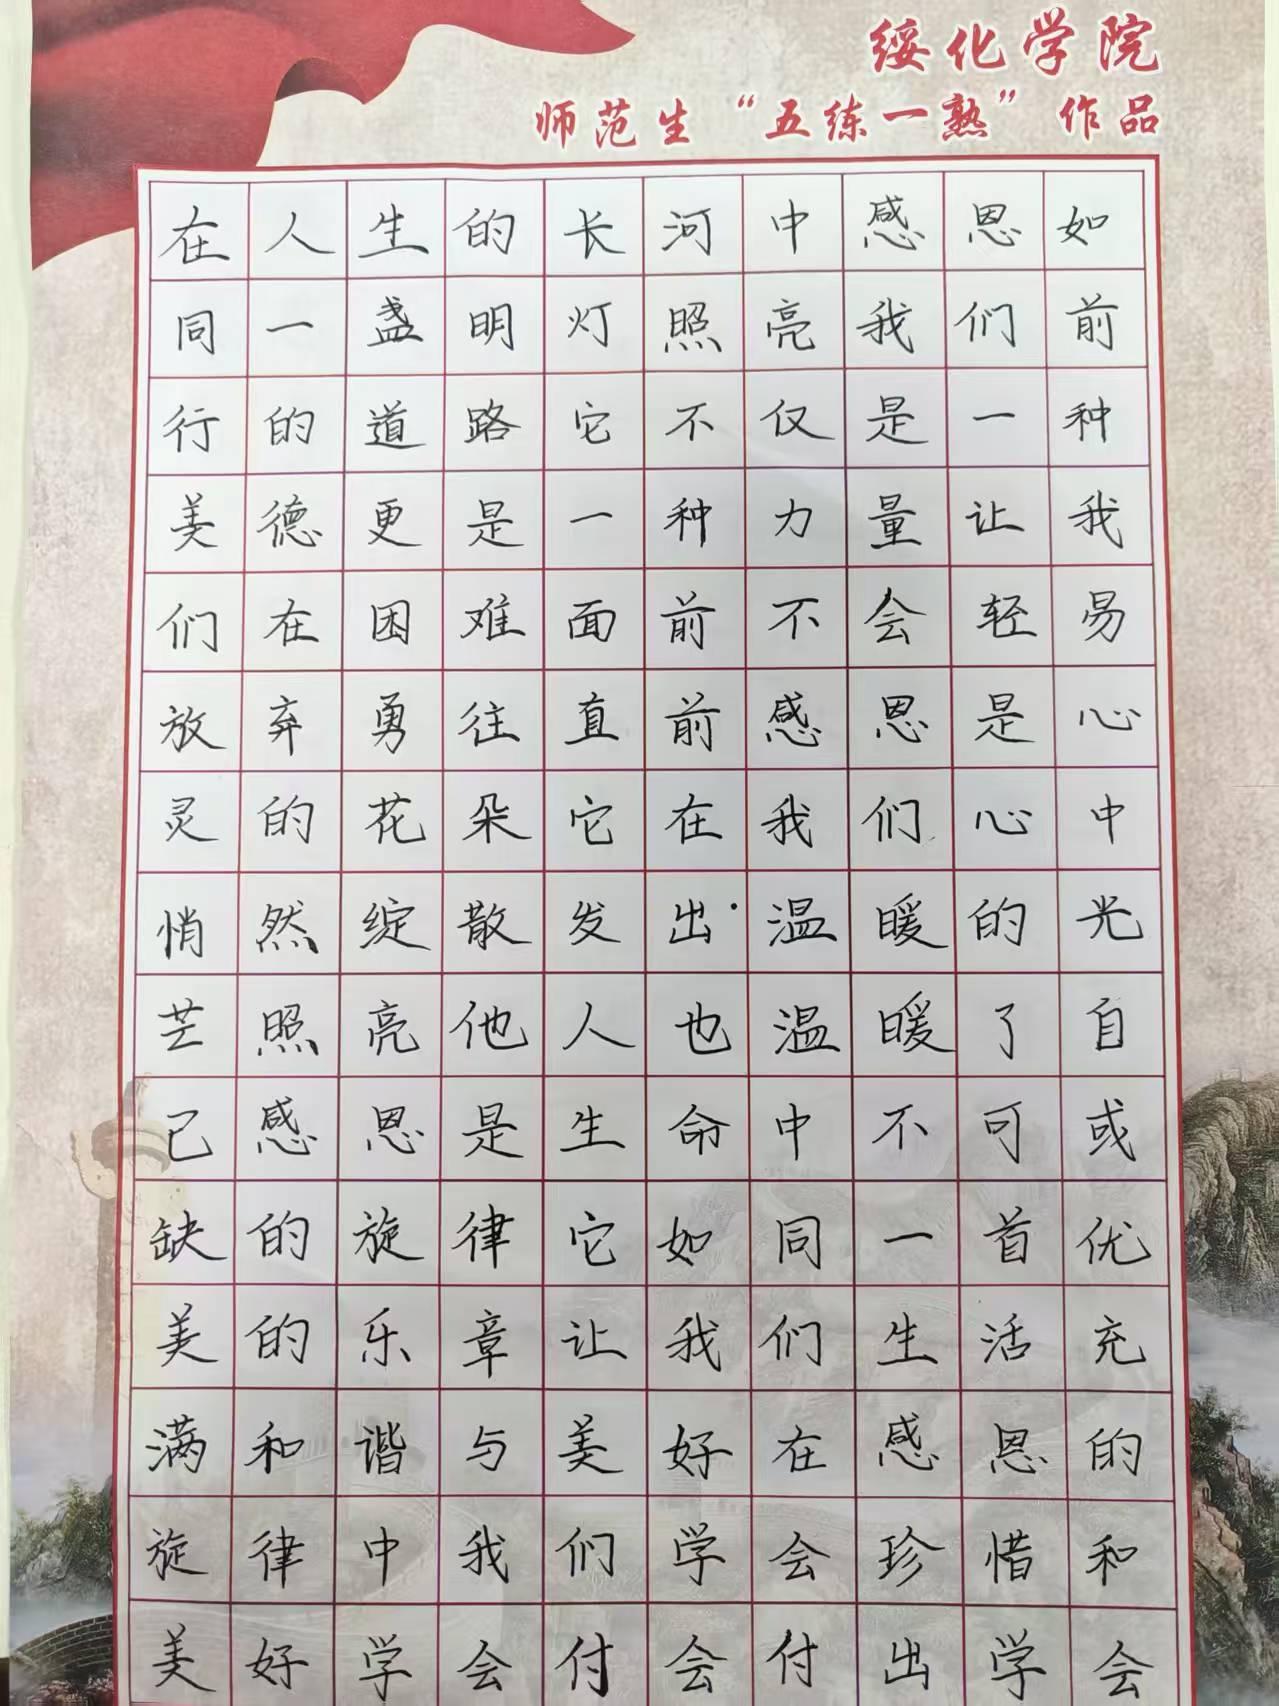 绥化学院
师范生“五练一熟”作品
在人生的长河中感恩如
同一盏明灯照亮我们前
行的道路它不仅是一种
美德更是一种力量让我
们在困难面前不会轻易
放弃勇往直前感恩是心
灵的花朵它在我们心中
悄然绽散发出温暖的光
芒照亮他人也温暖了自
己感恩是生命中不可或
缺的旋律它如同一首优
美的乐章让我们生活充
满和谐与美好在感恩的
旋律中我们学会珍惜和
美好学会付会付出学会